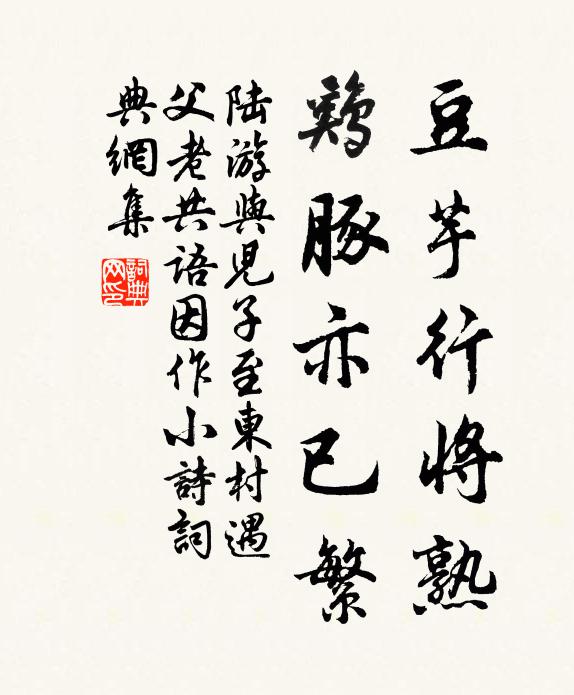 豆芋行將熟
鷄豚亦已繁
陆游與児子至東村遇
父老共語因作小詩詞
典網集
詞典
网印